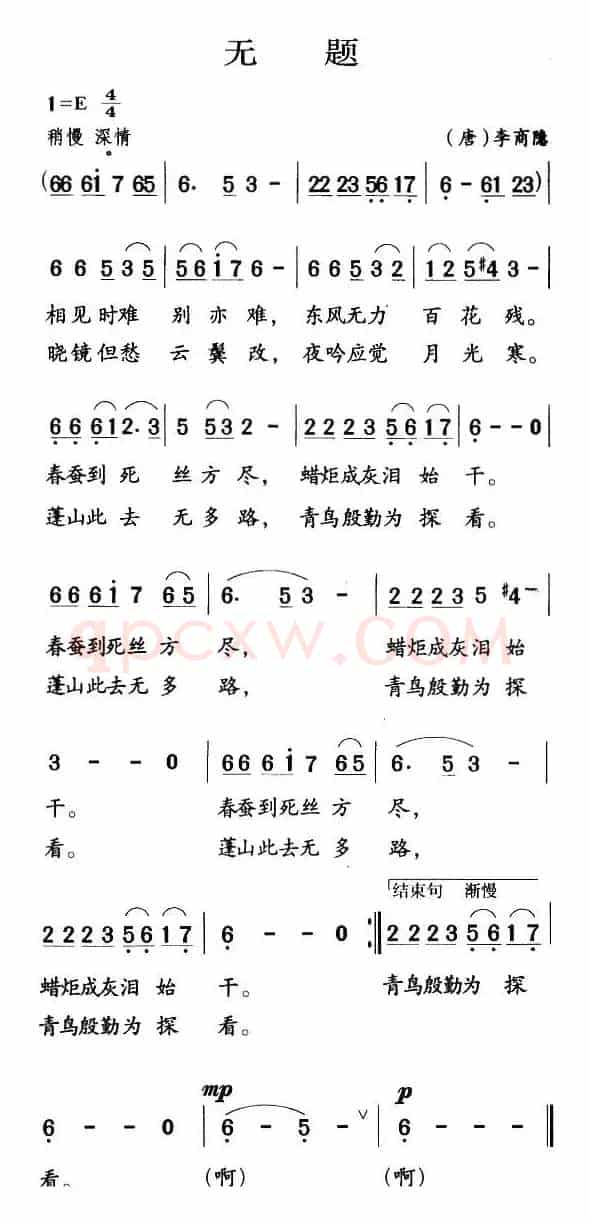 无 题
1=E 4/4
稍慢 深情
(唐)李商隐
(66 6i 7 65 | 6. 5 3 - | 22 23 56 17 | 6 - 61 23)
6 6 5 3 5 | 5 6 i 7 6 - | 6 6 5 3 2 | 1 2 5 #4 3 -
相见时难 别亦难, 东风无力 百花残。
晓镜但愁 云鬓改, 夜吟应觉 月光寒。
6 6 6 1 2. 3 | 5 5 3 2 - | 2 2 2 3 5 6 1 7 | 6 - - 0
春蚕到死 丝方尽, 蜡炬成灰泪始干。
蓬山此去 无多路, 青鸟殷勤为探看。
6 6 6 i 7 6 5 | 6. 5 3 - | 2 2 2 3 5 #4 -
春蚕到死丝方 尽, 蜡炬成灰泪始
qpcxw.com
蓬山此去无多 路, 青鸟殷勤为探
3 - - 0 | 6 6 6 i 7 6 5 | 6. 5 3 -
干。 春蚕到死丝方 尽,
看。 蓬山此去无多 路,
结束句 渐慢
2 2 2 3 5 6 1 7 | 6 - - 0 :‖ 2 2 2 3 5 6 1 7
蜡炬成灰泪 始 干。 青鸟殷勤为 探
青鸟殷勤为 探 看。
mp p
6 - - 0 | 6 - 5 - ∨ | 6 - - - ‖
看。 (啊) (啊)